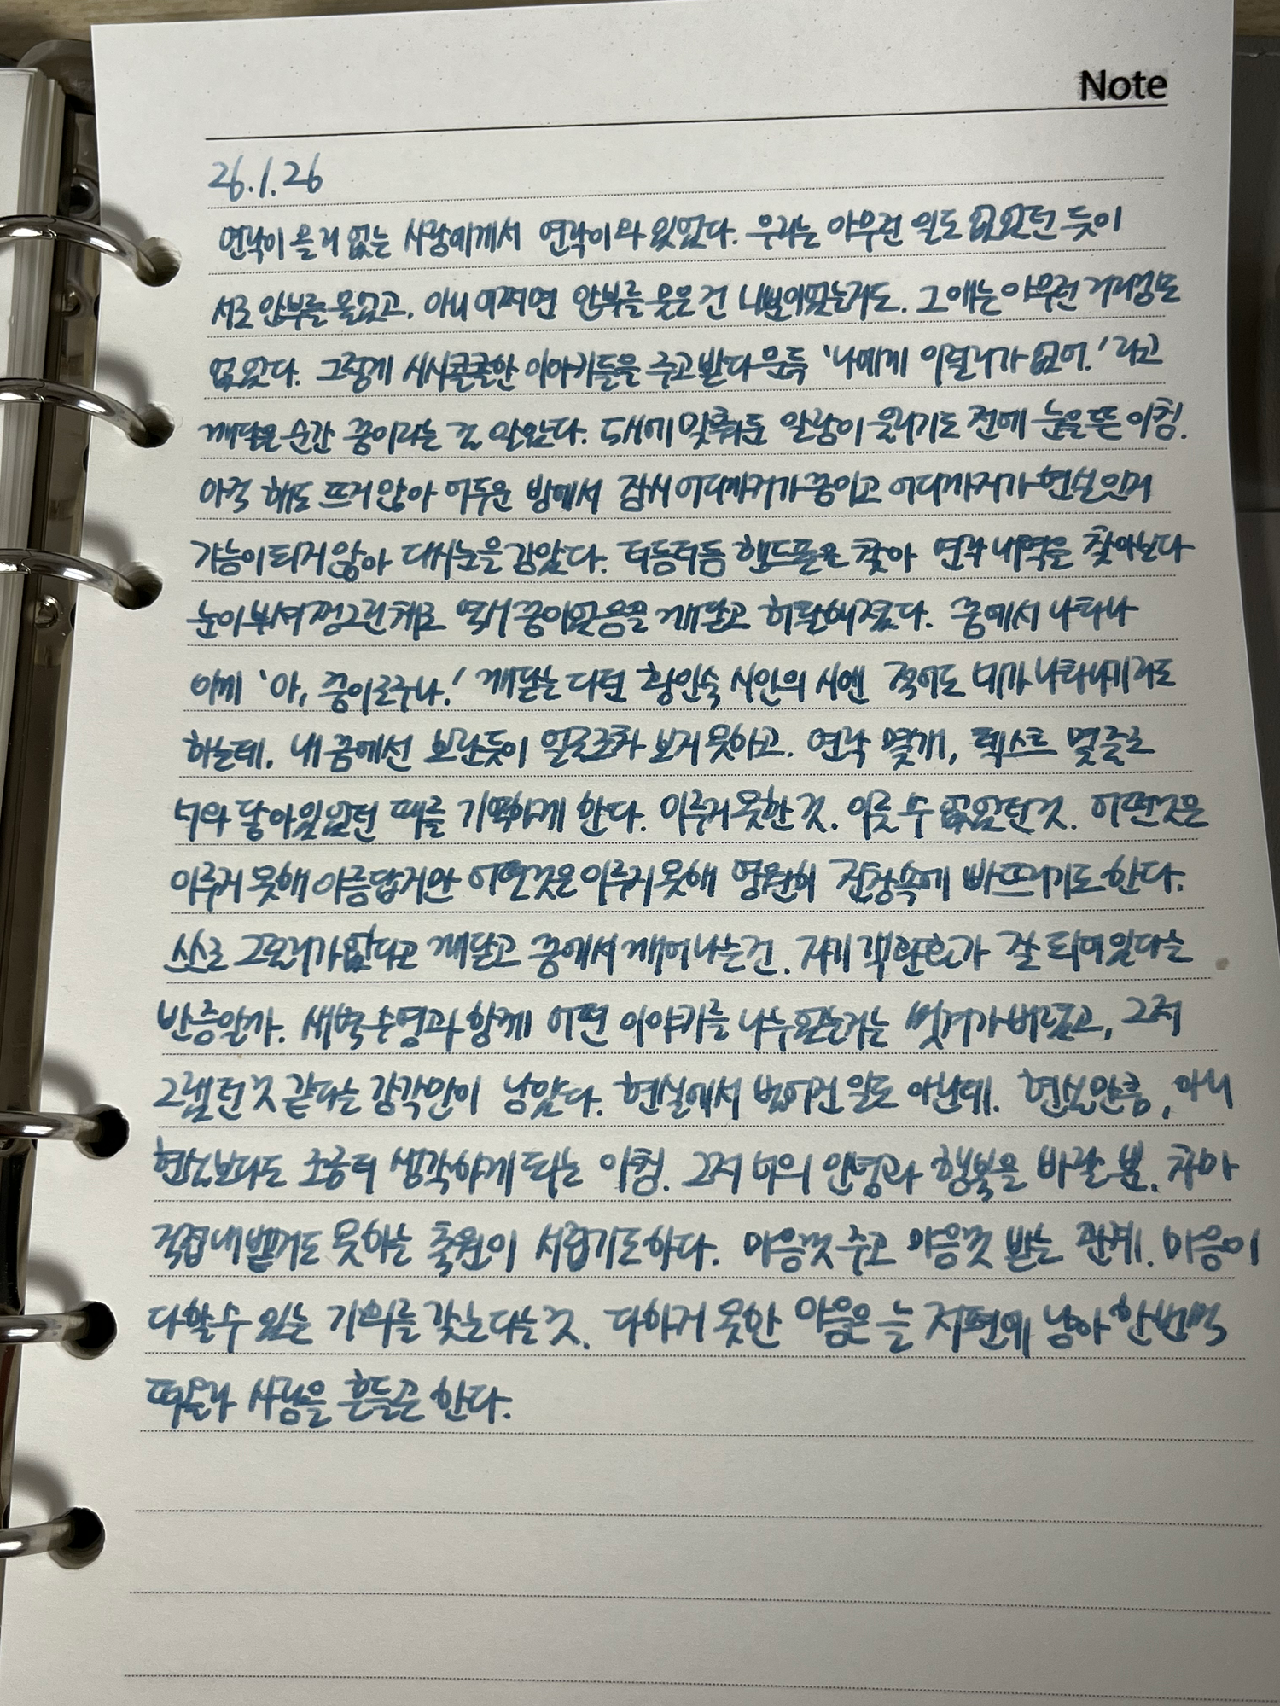 Note
26.1.26
연락이 올 리 없는 사람에게서 연락이 와 있었다. 우리는 아무런 일도 없었던 듯이
서로 안부를 물었고. 아니 어쩌면 안부를 물은 건 나뿐이었는지도. 그 애는 아무런 거리낌도
없었다. 그렇게 시시콜콜한 이야기들을 주고 받다 문득 '나에게 이럴리가 없어.' 라고
깨달은 순간 꿈이라는 걸 알았다. 5시에 맞춰둔 알람이 울리기도 전에 눈을 뜬 아침.
아직 해도 뜨지 않아 어두운 방에서 잠시 어디까지가 꿈이고 어디까지가 현실인지
가늠이 되지 않아 다시 눈을 감았다. 더듬더듬 핸드폰을 찾아 연락 내역을 찾아보다
눈이 부셔 찡그린 채로 역시 꿈이었음을 깨닫고 허탈해졌다. 꿈에서 나타나
이게 '아, 꿈이로구나.' 깨닫는다던 황인숙 시인의 시엔 적어도 네가 나타나기라도
하는데. 내 꿈에선 보란듯이 얼굴조차 보지 못하고. 연락 몇개, 텍스트 몇줄로
너와 닿아있었던 때를 기억하게 한다. 이루지 못한 것. 이룰 수 없었던 것. 어떤것은
이루지 못해 아름답지만 어떤것은 이루지 못해 영원히 진창속에 빠뜨리기도 한다.
스스로 그럴리가 없다고 깨닫고 꿈에서 깨어나는건. 자기 객관화가 잘 되어 있다는
반증일까. 새벽 수영과 함께 어떤 이야기를 나누었는지는 씻겨가 버렸고, 그저
그랬던 것 같다는 감각만이 남았다. 현실에서 벌어진 일도 아닌데. 현실만큼, 아니
현실보다도 조용히 생각하게 되는 아침. 그저 너의 안녕과 행복을 바랄 뿐. 차마
직접 내뱉지도 못하는 축원이 서럽기도하다. 마음껏 주고 마음껏 받는 관계. 마음이
다할 수 있는 기회를 갖는다는 것. 다하지 못한 마음은 늘 저편에 남아 한번씩
떠올라 사람을 흔들곤 한다.